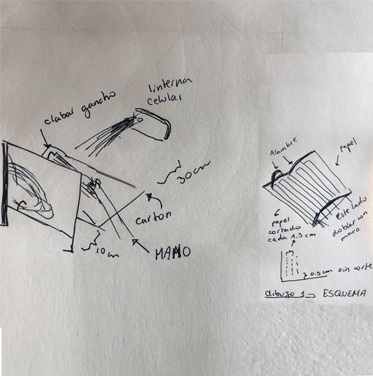 clabar gancho
linterna
celular
30cm
carton
10cm
MANO
Alambre
papel
papel
cortado
cada 1.5cm
Este lado
doblar con
mano
0.5cm sin corte
dibujo 1 → ESQUEMA